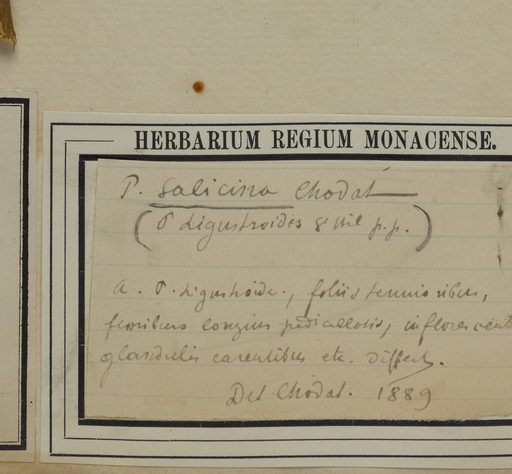 HERBARIUM REGIUM MONACENSE.
P. Salicina Chodat
(P ligustroides St Hil p.p.)
a. P. ligustroide., foliis tenuioribus,
floribus longius pedicellatis, inflorescent
glandulis carentibus etc. differt.
Det Chodat. 1889